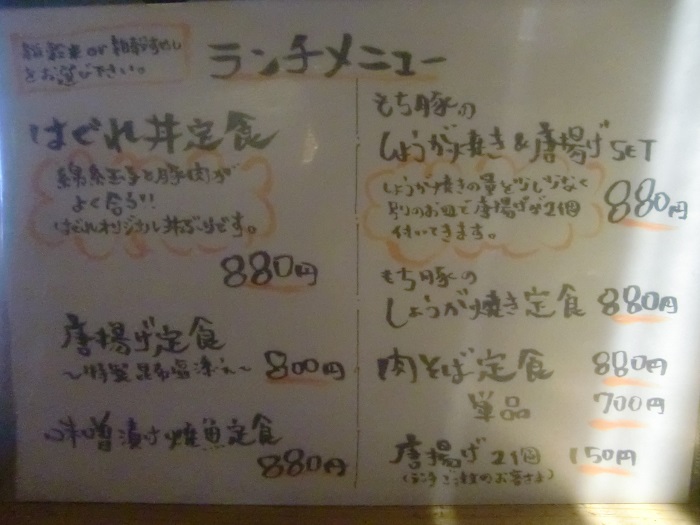 ランチメニュー
をお選び下さい。
はぐれ丼定食
錦糸玉子と豚肉が
よく合う!!
はぐれオリジナル丼ぶりです。
880円
唐揚げ定食
〜特製昆布塩添え〜 800円
味噌漬け焼魚定食
880円
もち豚の
しょうが焼き&唐揚げSET
しょうが焼きの量を少し少なく
別のお皿で唐揚げが2個
付いてきます。
880円
もち豚の
しょうが焼き定食 880円
肉そば定食 880円
単品 700円
唐揚げ2個 150円
(ランチご注文のお客さま)